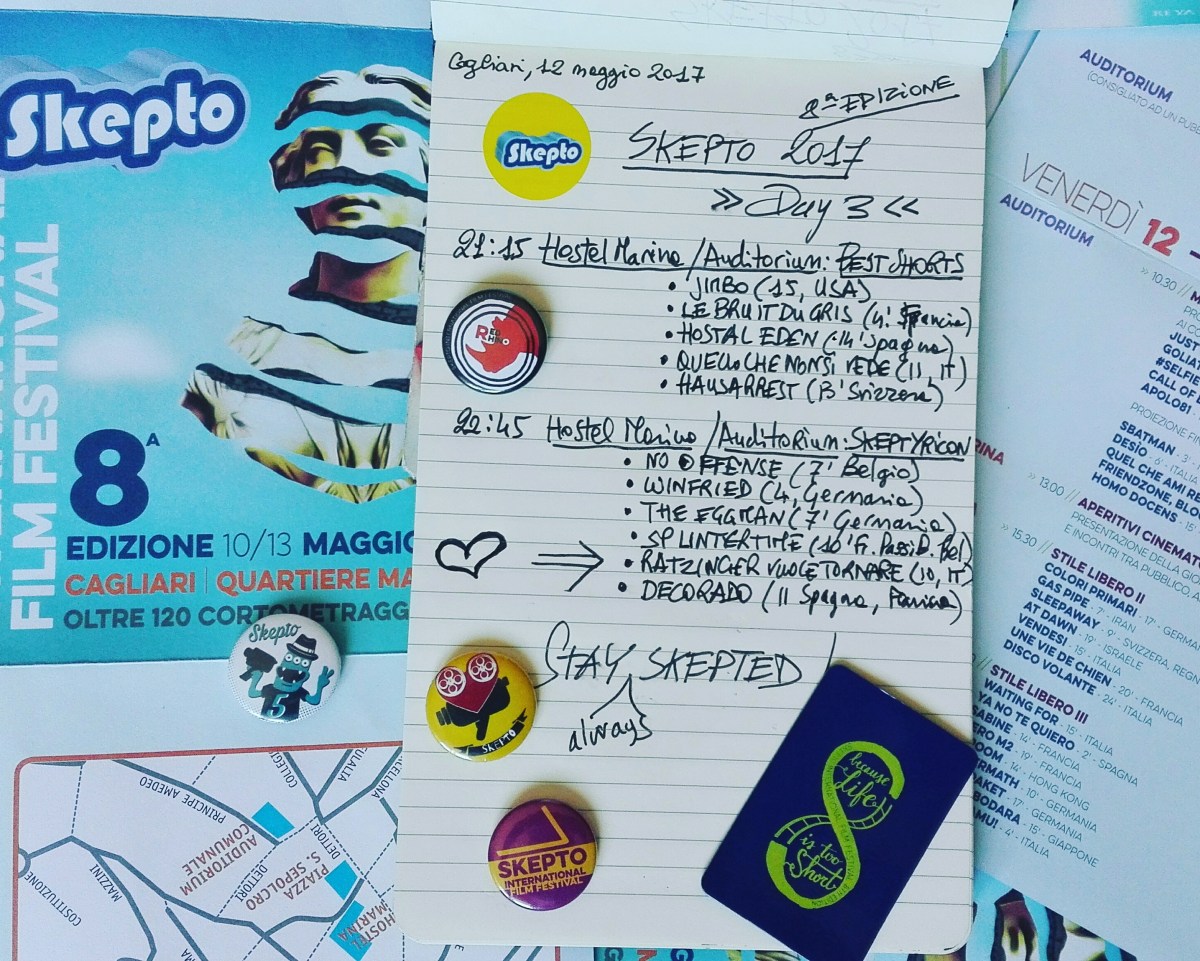 Skepto
FILM FESTIVAL
8A
EDIZIONE 10/13 MAGGIO
CAGLIARI | QUARTIERE MA
OLTRE 120 CORTOMETRAGG
Skepto
5
PRINCIPE AMEDEO
COLLEGIO
EULALIA
AUDITORIUM
COMUNALE
DETTORI
DETTORI
PIAZZA
S. SEPOLCRO
HOSTEL
MARINA
MAZZINI
COSTITUZIONE
Cagliari, 12 maggio 2017
8ª EDIZIONE
Skepto
SKEPTO 2017
>> Day 3 <<
21:15 Hostel Marina / Auditorium: BEST SHORTS
• JIMBO (15, USA)
• LE BRUIT DU GRIS (4' Francia)
• HOSTAL EDEN (14' Spagna)
• QUELLO CHE NON SI VEDE (11, IT)
• HAUSARREST (13' Svizzera)
RED
RHINO
22:45 Hostel Marina / Auditorium: SKEPTYRICON
• NO OFFENSE (7' Belgio)
• WINFRIED (4, Germania)
• THE EGGMAN (7' Germania)
• SPLINTERTIME (10' Fi. Passib. Bel)
• RATZINGER VUOLE TORNARE (10, IT)
• DECORADO (11 Spagna, Francia)
STAY SKEPTED!
always
SKEPTO
SKEPTO
INTERNATIONAL
FILM FESTIVAL
because
Life
is too
Short
AUDITORIUM
(CONSIGLIATO AD UN PUBB
VENERDÌ 12
AUDITORIUM
>> 10.30 //
JUST
GOLIAT
#SELFIE
CALL OF
APOLO81
PROIEZIONE
SBATMAN · 3'
DESÌO · 6' · ITALIA
QUEL CHE AMI RE
FRIENDZONE, BLO
HOMO DOCENS · 15'
RINA
>> 13.00 // APERITIVI CINEMATO
PRESENTAZIONE DELLA GIO
E INCONTRI TRA PUBBLICO, A
>> 15.30 // STILE LIBERO II
COLORI PRIMARI
GAS PIPE · 7' · IRAN
SLEEPAWAY · 17' · GERMAN
AT DAWN · 9' · SVIZZERA, REG
VENDESI · 19' · ISRAELE
UNE VIE DE CHIEN · 20' · FRANCIA
DISCO VOLANTE · 24' · ITALIA
STILE LIBERO III
WAITING FOR · 15' · ITALIA
YA NO TE QUIERO · 2' · SPAGNA
SABINE · 14' · FRANCIA
ERO M2 · 19' · FRANCIA
OOM · 14' · HONG KONG
ERMATH · 10' · GERMANIA
AKET · 17' · GERMANIA
BODARA · 15' · GIAPPONE
AMU! · 4' · ITALIA